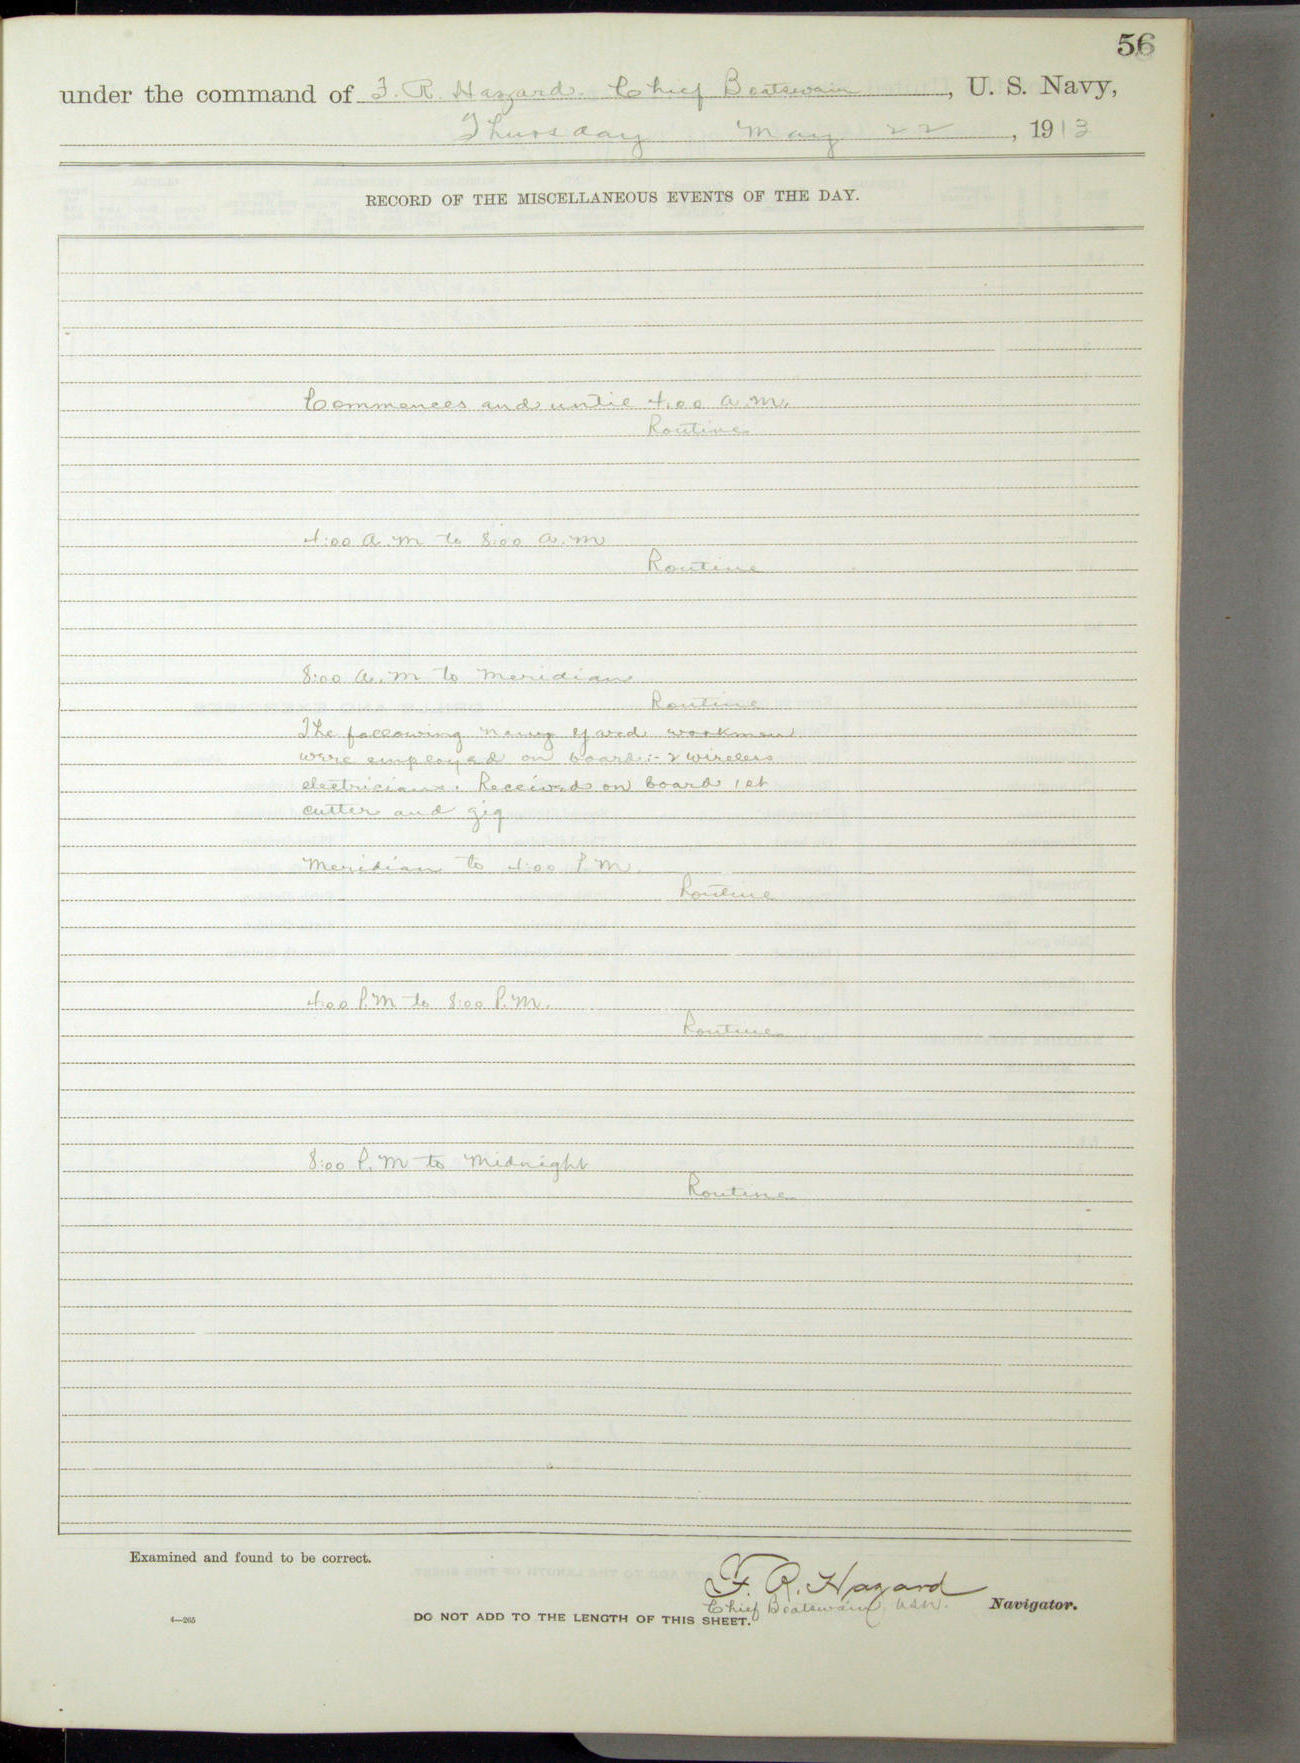 56
under the command of F. R. Hazard. Chief Boatswain, U. S. Navy,
Thursday May 22, 1913
RECORD OF THE MISCELLANEOUS EVENTS OF THE DAY.
Commences and until 4.00 a.m.
Routine
4:00 a.m to 8:00 a.m
Routine
8:00 a.m to Meridian
Routine
The following navy yard workmen
were employed on board:- 2 wireless
electricians. Received on board 1st
cutter and gig
Meridian to 4:00 P M.
Routine
4:00 P.M to 8:00 P.M.
Routine
8:00 P.M to Midnight
Routine
Examined and found to be correct.
F. R. Hazard
Chief Boatswain, USN. Navigator.
4—265
DO NOT ADD TO THE LENGTH OF THIS SHEET.